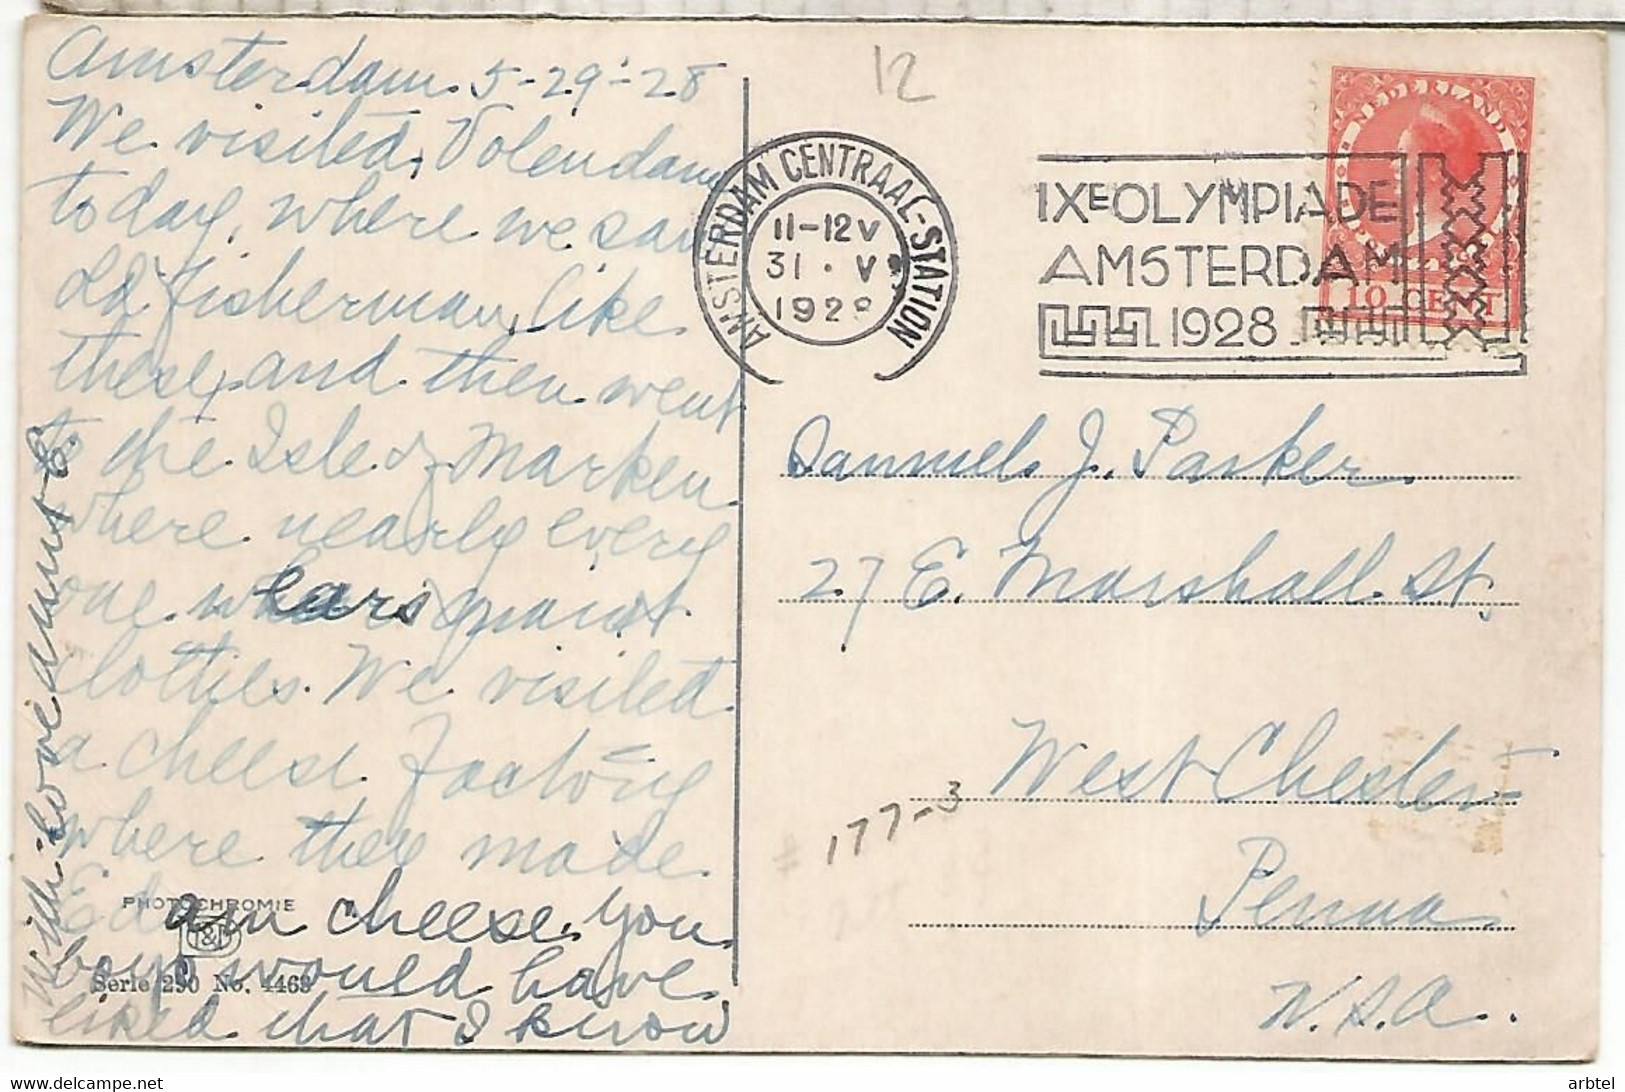 Amsterdam. 5-29-28
We visited Volendam
today, where we saw
old fisherman, like
these, and then went
to the Isle of Marken
where nearly every
one wears quaint
clothes. We visited
a cheese factory
where they made
Edam cheese. you
boys would have
liked that I know
With love
PHOTOCHROMIE
Serie 290 No. 4463
12
AMSTERDAM CENTRAAL-STATION
11-12 V
31 . V
1928
IXE OLYMPIADE
AMSTERDAM
1928
NEDERLAND
10 CENT
Samuel J. Parker
27 E. Marshall St.
West Chester
Penna
U.S.A.
# 177-3
arbtel